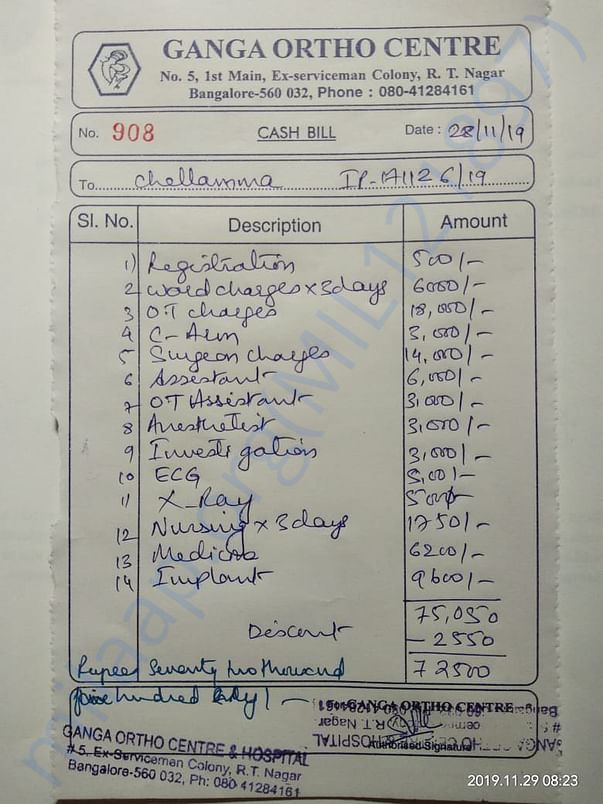 GANGA ORTHO CENTRE
No. 5, 1st Main, Ex-serviceman Colony, R. T. Nagar
Bangalore-560 032, Phone : 080-41284161
No. 908 CASH BILL Date : 28/11/19
To Chellamma IP-171126/19
Sl. No. Description Amount
1) Registration 500/-
2 Ward charges x 3 days 6000/-
3 OT charges 18,000/-
4 C-Arm 3,000/-
5 Surgeon charges 14,000/-
6 Assistant 6,000/-
7 OT Assistant 3,000/-
8 Anesthetist 3,000/-
9 Investigation 3,000/-
10 ECG
11 X-Ray
12 Nursing x 3 days 1750/-
13 6200/-
14 Implant 9600/-
75,050
Discount - 2550
72500
Rupees Seventy two thousand
five hundred only/-
GANGA ORTHO CENTRE
Authorised Signature
GANGA ORTHO CENTRE & HOSPITAL
# 5, Ex-Serviceman Colony, R.T. Nagar
Bangalore-560 032, Ph: 080 41284161
2019.11.29 08:23